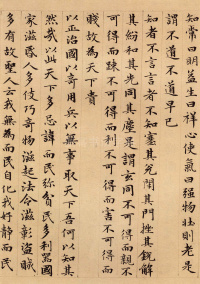 知常曰明益生曰祥心使氣曰强物壯則老是
謂不道不道早已
知者不言言者不知塞其兌閉其門挫其銳解
其紛和其光同其塵是謂玄同不可得而親不
可得而踈不可得而利不可得而害不可得而
賤故為天下貴
以正治國奇用兵以無事取天下吾何以知其
然哉以此天下多忌諱而民弥貧民多利器國
家滋昬人多伎巧奇物滋起法令滋彰盜賊
多有故聖人云我無為而民自化我好靜而民